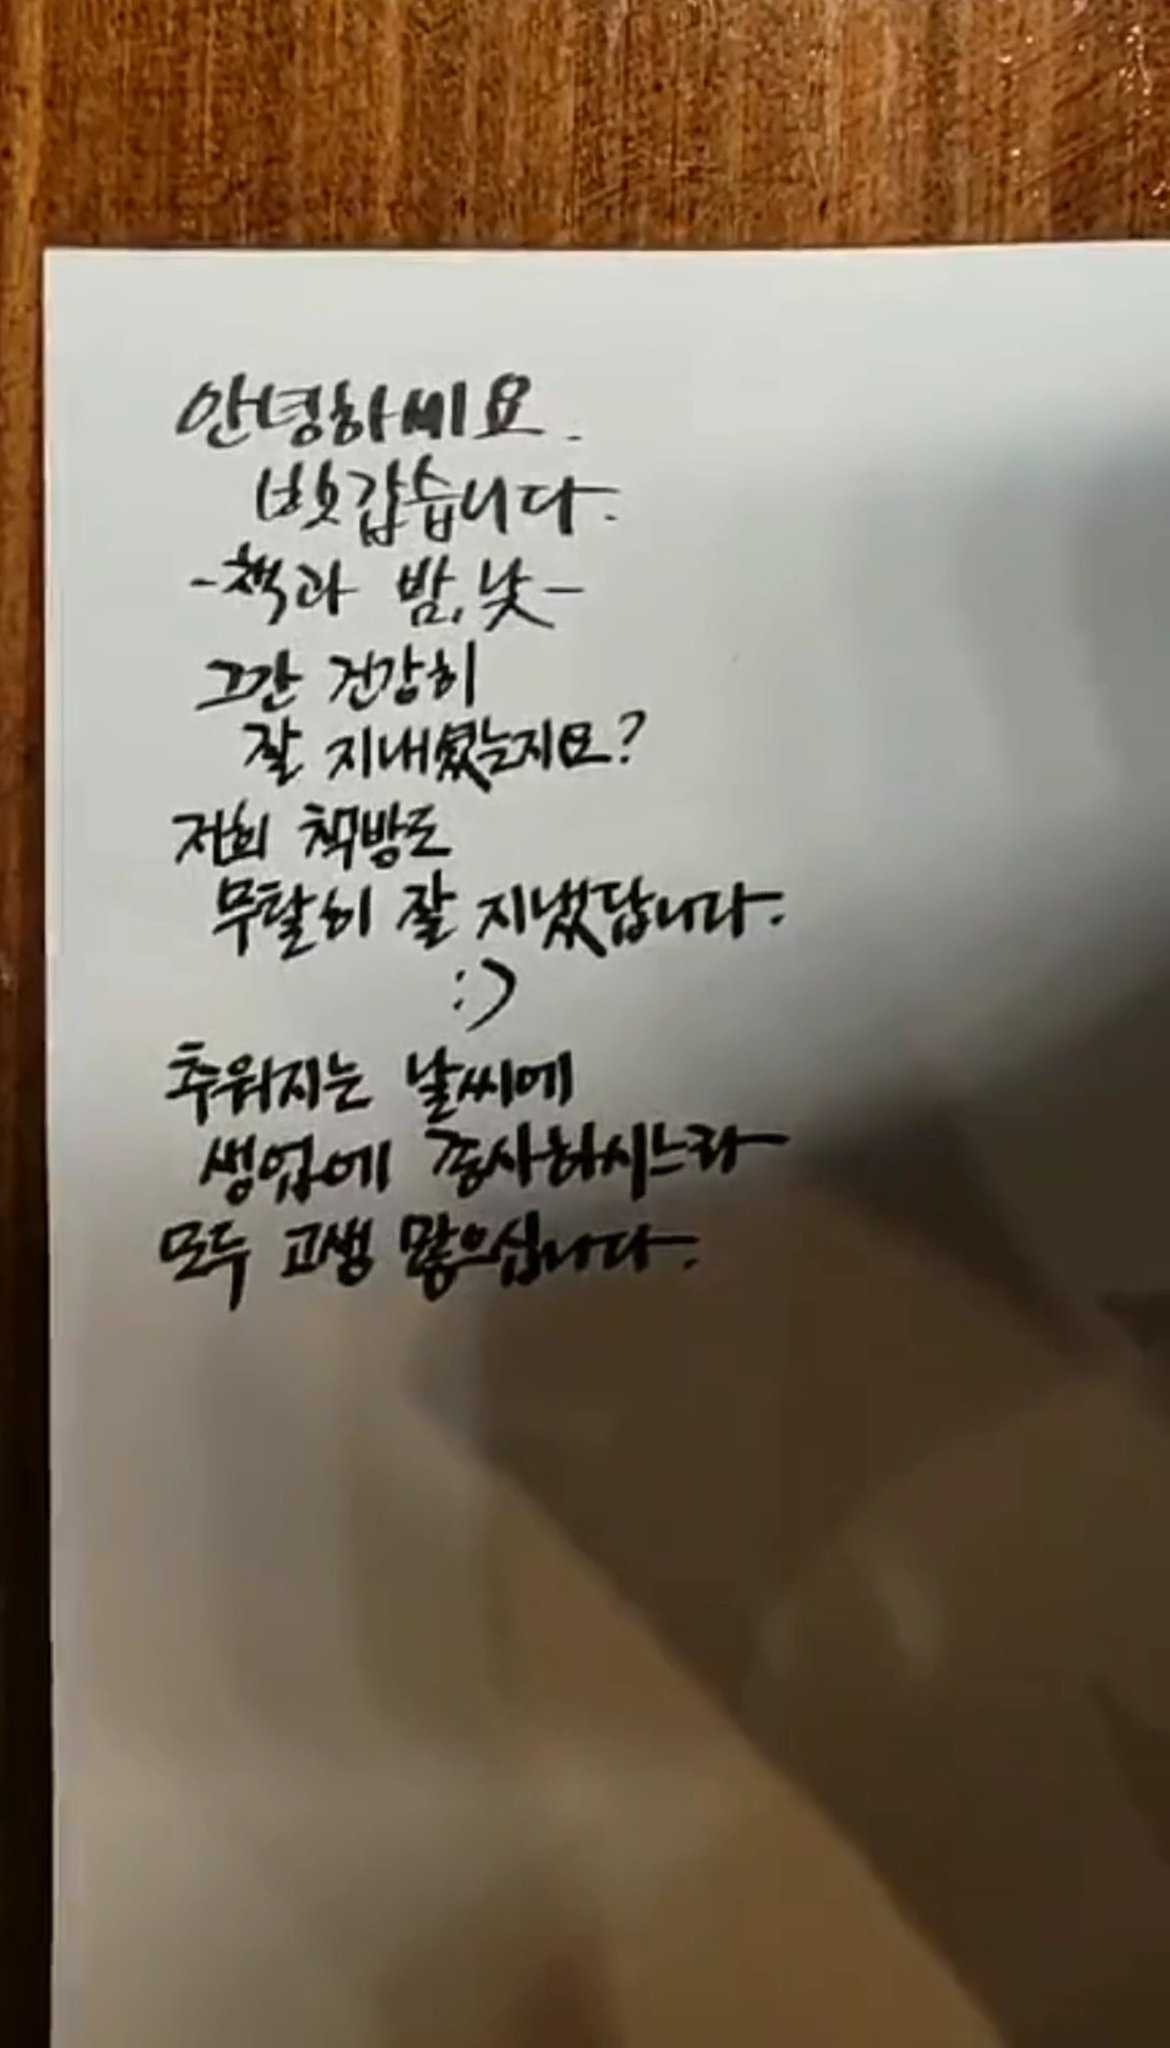 안녕하세요.
벗갑습니다.
-책과 밤,낮-
그간 건강히
잘 지내셨는지요?
저희 책방도
무탈히 잘 지냈답니다.
:)
추워지는 날씨에
생업에 종사하시느라
모두 고생 많으십니다.